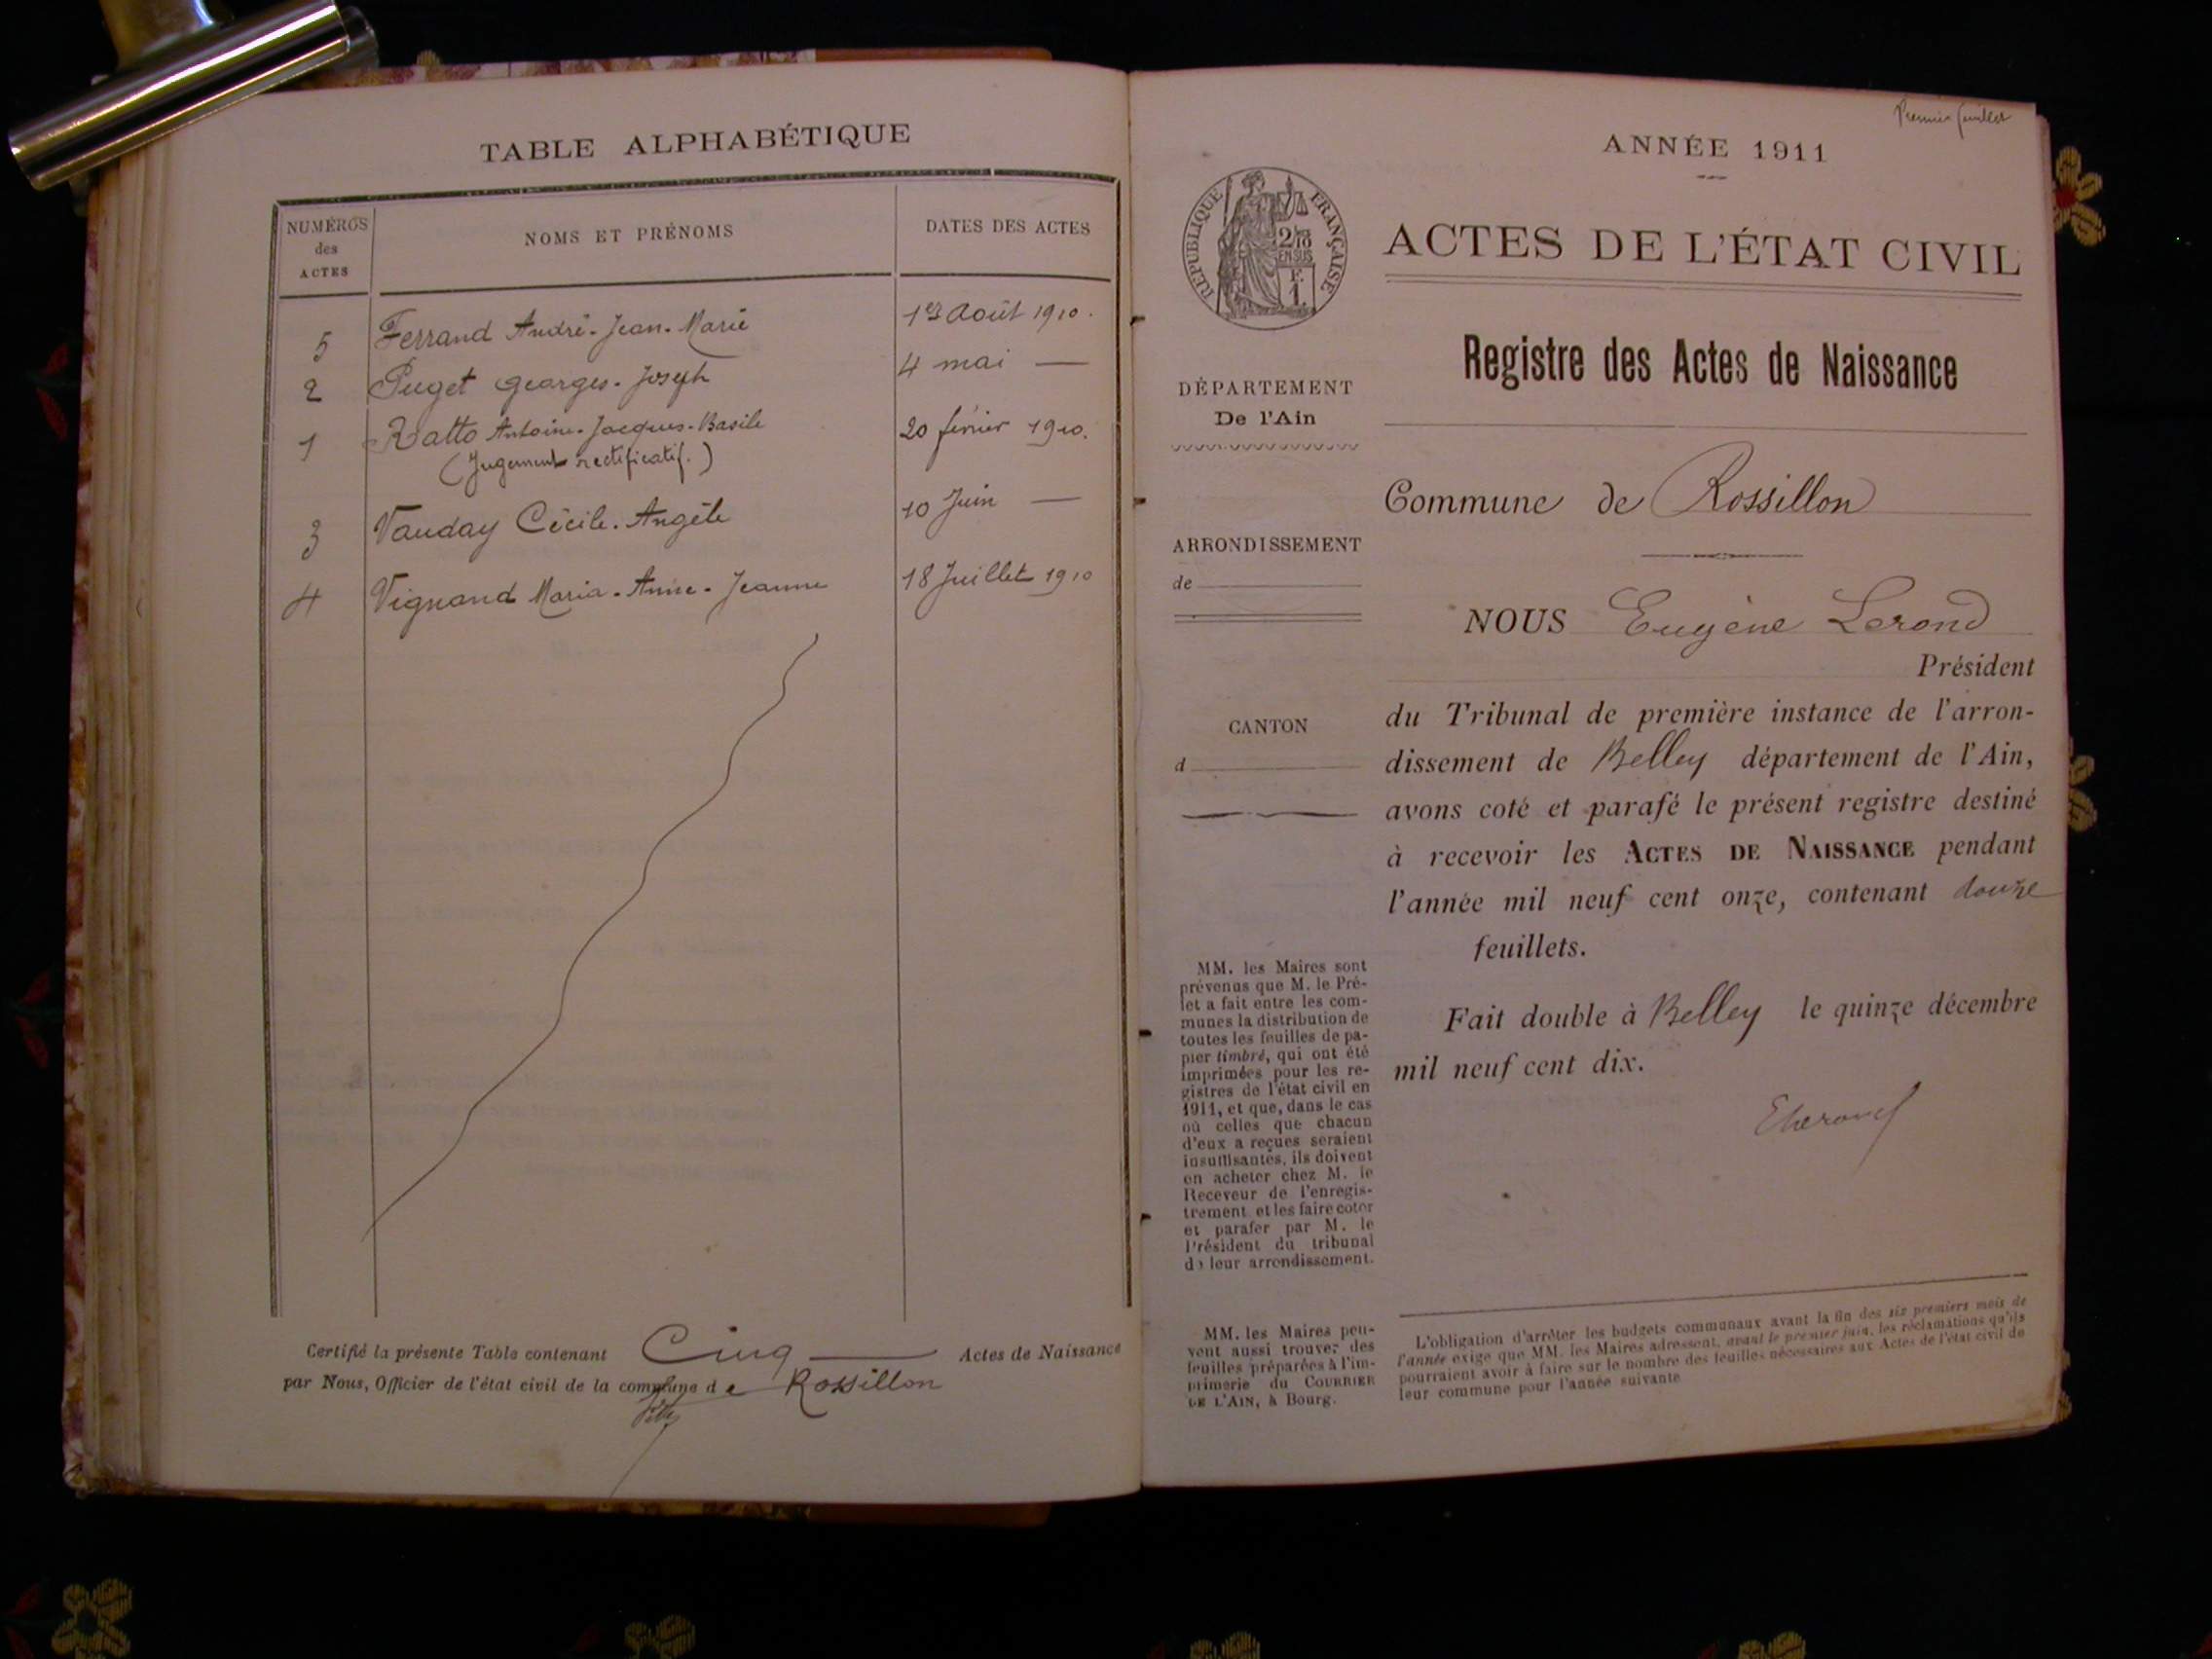 TABLE ALPHABÉTIQUE
NUMÉROS des ACTES
NOMS ET PRÉNOMS
DATES DES ACTES
5 Ferrand André-Jean-Marie 1er Août 1910.
2 Puget Georges-Joseph 4 mai —
1 Ratto Antoine-Jacques-Basile 20 février 1910.
(Jugement rectificatif.)
3 Vauday Cécile-Angèle 10 Juin —
4 Vignand Maria-Anne-Jeanne 18 Juillet 1910
Certifié la présente Table contenant Cinq — Actes de Naissance
par Nous, Officier de l'état civil de la commune de Rossillon
Premier feuillet
ANNÉE 1911
RÉPUBLIQUE FRANÇAISE
2/10
EN SUS
F.
1.
ACTES DE L'ÉTAT CIVIL
Registre des Actes de Naissance
DÉPARTEMENT
De l'Ain
ARRONDISSEMENT
de
CANTON
d
MM. les Maires sont
prévenus que M. le Pré-
fet a fait entre les com-
munes la distribution de
toutes les feuilles de pa-
pier timbré, qui ont été
imprimées pour les re-
gistres de l'état civil en
1911, et que, dans le cas
où celles que chacun
d'eux a reçues seraient
insuffisantes, ils doivent
en acheter chez M. le
Receveur de l'enregis-
trement et les faire coter
et parafer par M. le
Président du tribunal
de leur arrondissement.
MM. les Maires peu-
vent aussi trouver des
feuilles préparées à l'im-
primerie du COURRIER
DE L'AIN, à Bourg.
Commune de Rossillon
NOUS Eugène Lerond
Président
du Tribunal de première instance de l'arron-
dissement de Belley département de l'Ain,
avons coté et parafé le présent registre destiné
à recevoir les ACTES DE NAISSANCE pendant
l'année mil neuf cent onze, contenant douze
feuillets.
Fait double à Belley le quinze décembre
mil neuf cent dix.
L'obligation d'arrêter les budgets communaux avant la fin des six premiers mois de
l'année exige que MM. les Maires adressent, avant le premier juin, les réclamations qu'ils
pourraient avoir à faire sur le nombre des feuilles nécessaires aux Actes de l'état civil de
leur commune pour l'année suivante